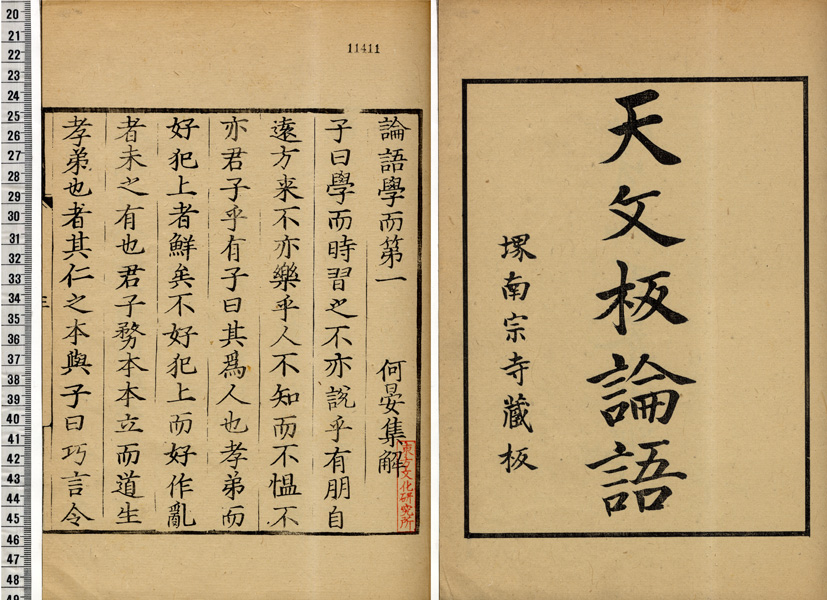 天文板論語
堺南宗寺藏板
11411
論語學而第一 何晏集解
子曰學而時習之不亦說乎有朋自
遠方来不亦樂乎人不知而不慍不
亦君子乎有子曰其爲人也孝弟而
好犯上者鮮矣不好犯上而好作亂
者未之有也君子務本本立而道生
孝弟也者其仁之本與子曰巧言令
東方文化研究所
三
20
21
22
23
24
25
26
27
28
29
30
31
32
33
34
35
36
37
38
39
40
41
42
43
44
45
46
47
48